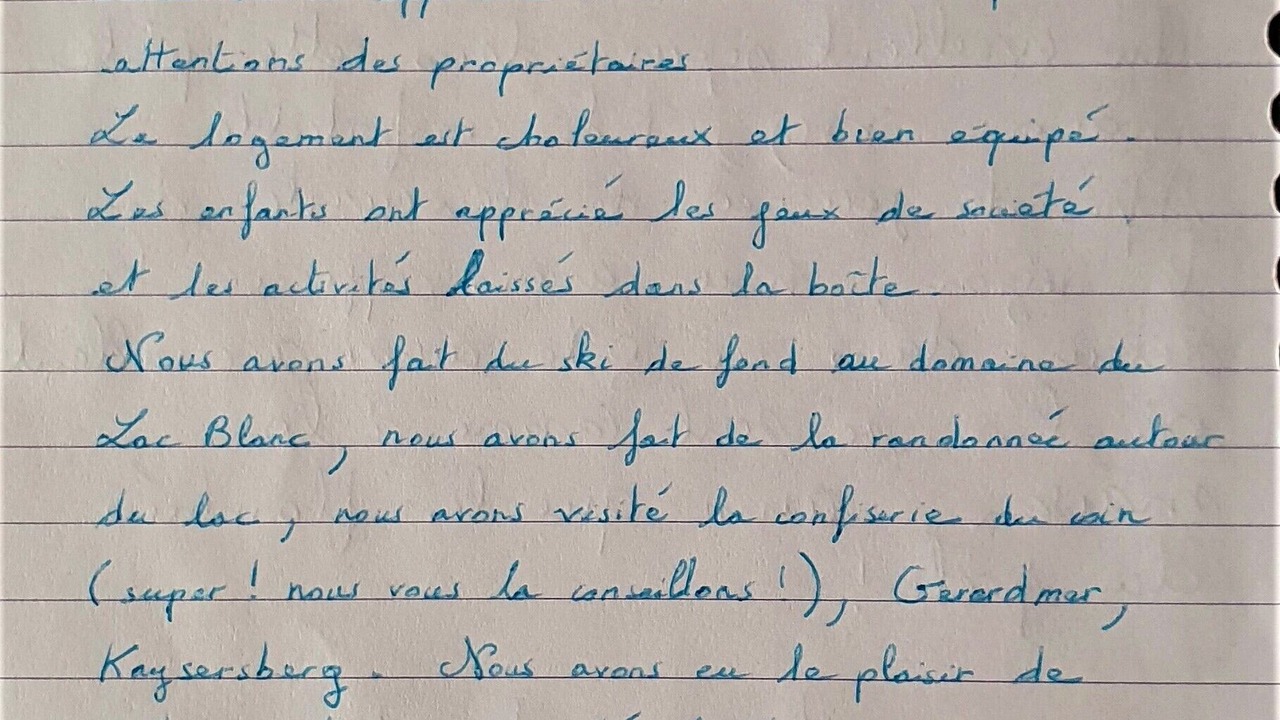 attentions des propriétaires
Le logement est chaleureux et bien équipé.
Les enfants ont apprécié les jeux de société
et les activités laissés dans la boîte.
Nous avons fait du ski de fond au domaine du
Lac Blanc, nous avons fait de la randonnée autour
du lac, nous avons visité la confiserie du coin
(super ! nous vous la conseillons !), Gerardmer,
Kaysersberg. Nous avons eu le plaisir de